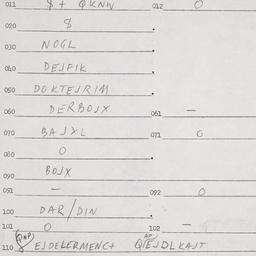 011 $ + QKNW 012 O
020 $ .
030 NOGL .
040 DEJFIK .
050 DOKTEJRIM .
060 DERBOJX 061 —
070 BAJXL 071 O
080 O .
090 BOJX
091 — 092 O
100 DAR/DIN .
101 O 102 —
110 EJDELERMENC+ QIEJDLKAJT